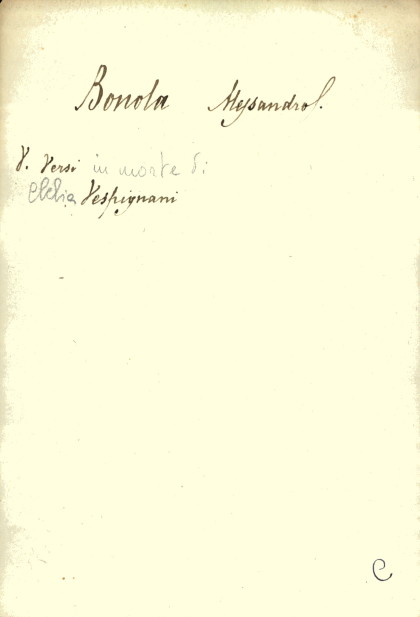 Bonola Alessandro.
V. Versi in morte di
Clelia Vespignani
C